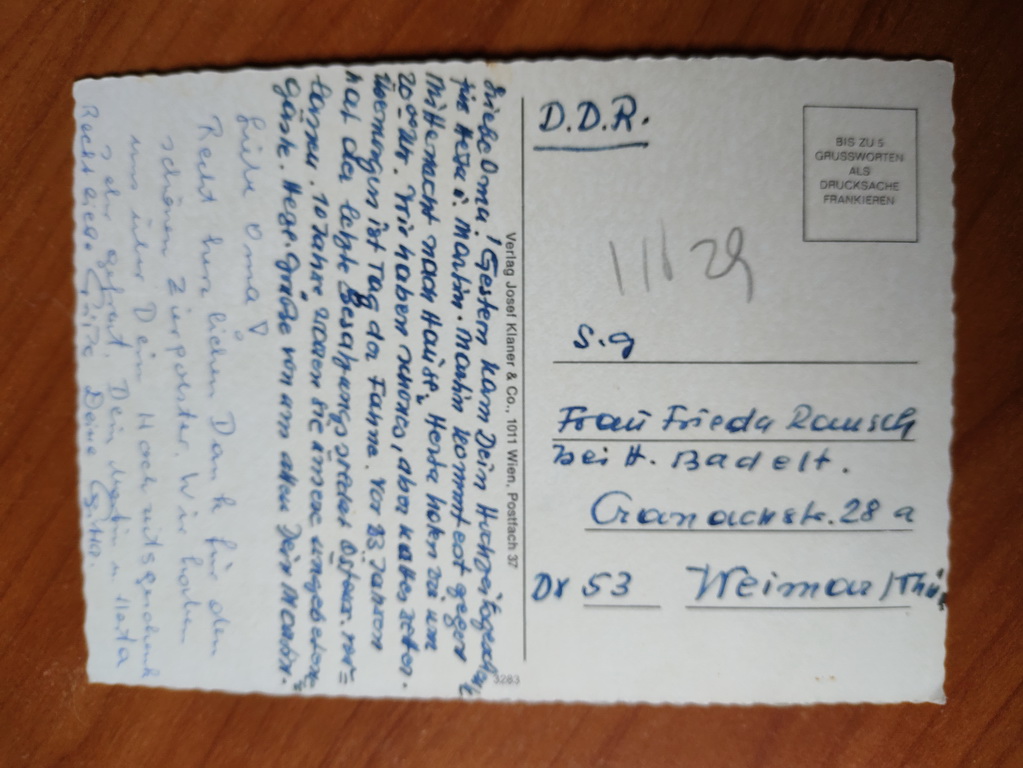 Liebe Oma! Gestern kam Dein Hochzeitsgeschenk
für Herta u. Martin. Martin kommt erst gegen
Mitternacht nach Hause, Herta holen wir um
20 00 Uhr. Wir haben schönes, aber kaltes Wetter.
Übermorgen ist Tag der Fahne. Vor 23 Jahren
hat der letzte Besatzungssoldat Österr. ver=
lassen. 10 Jahre waren sie unsere ungebetene
Gäste. Herzl. Grüße von uns allen Dein Martin.
Liebe Oma!
Recht herzlichen Dank für den
schönen Zierpolster. Wir haben
uns über Dein Hochzeitsgeschenk
sehr gefreut. Dein Martin u. Herta
Recht liebe Grüße Deine
Verlag Josef Klaner & Co., 1011 Wien, Postfach 37
3283
D.D.R.
BIS ZU 5
GRUSSWORTEN
ALS
DRUCKSACHE
FRANKIEREN
29
S.g
Frau Frieda Rausch
bei H. Badelt.
Cranachstr. 28 a
53 Weimar/Thür